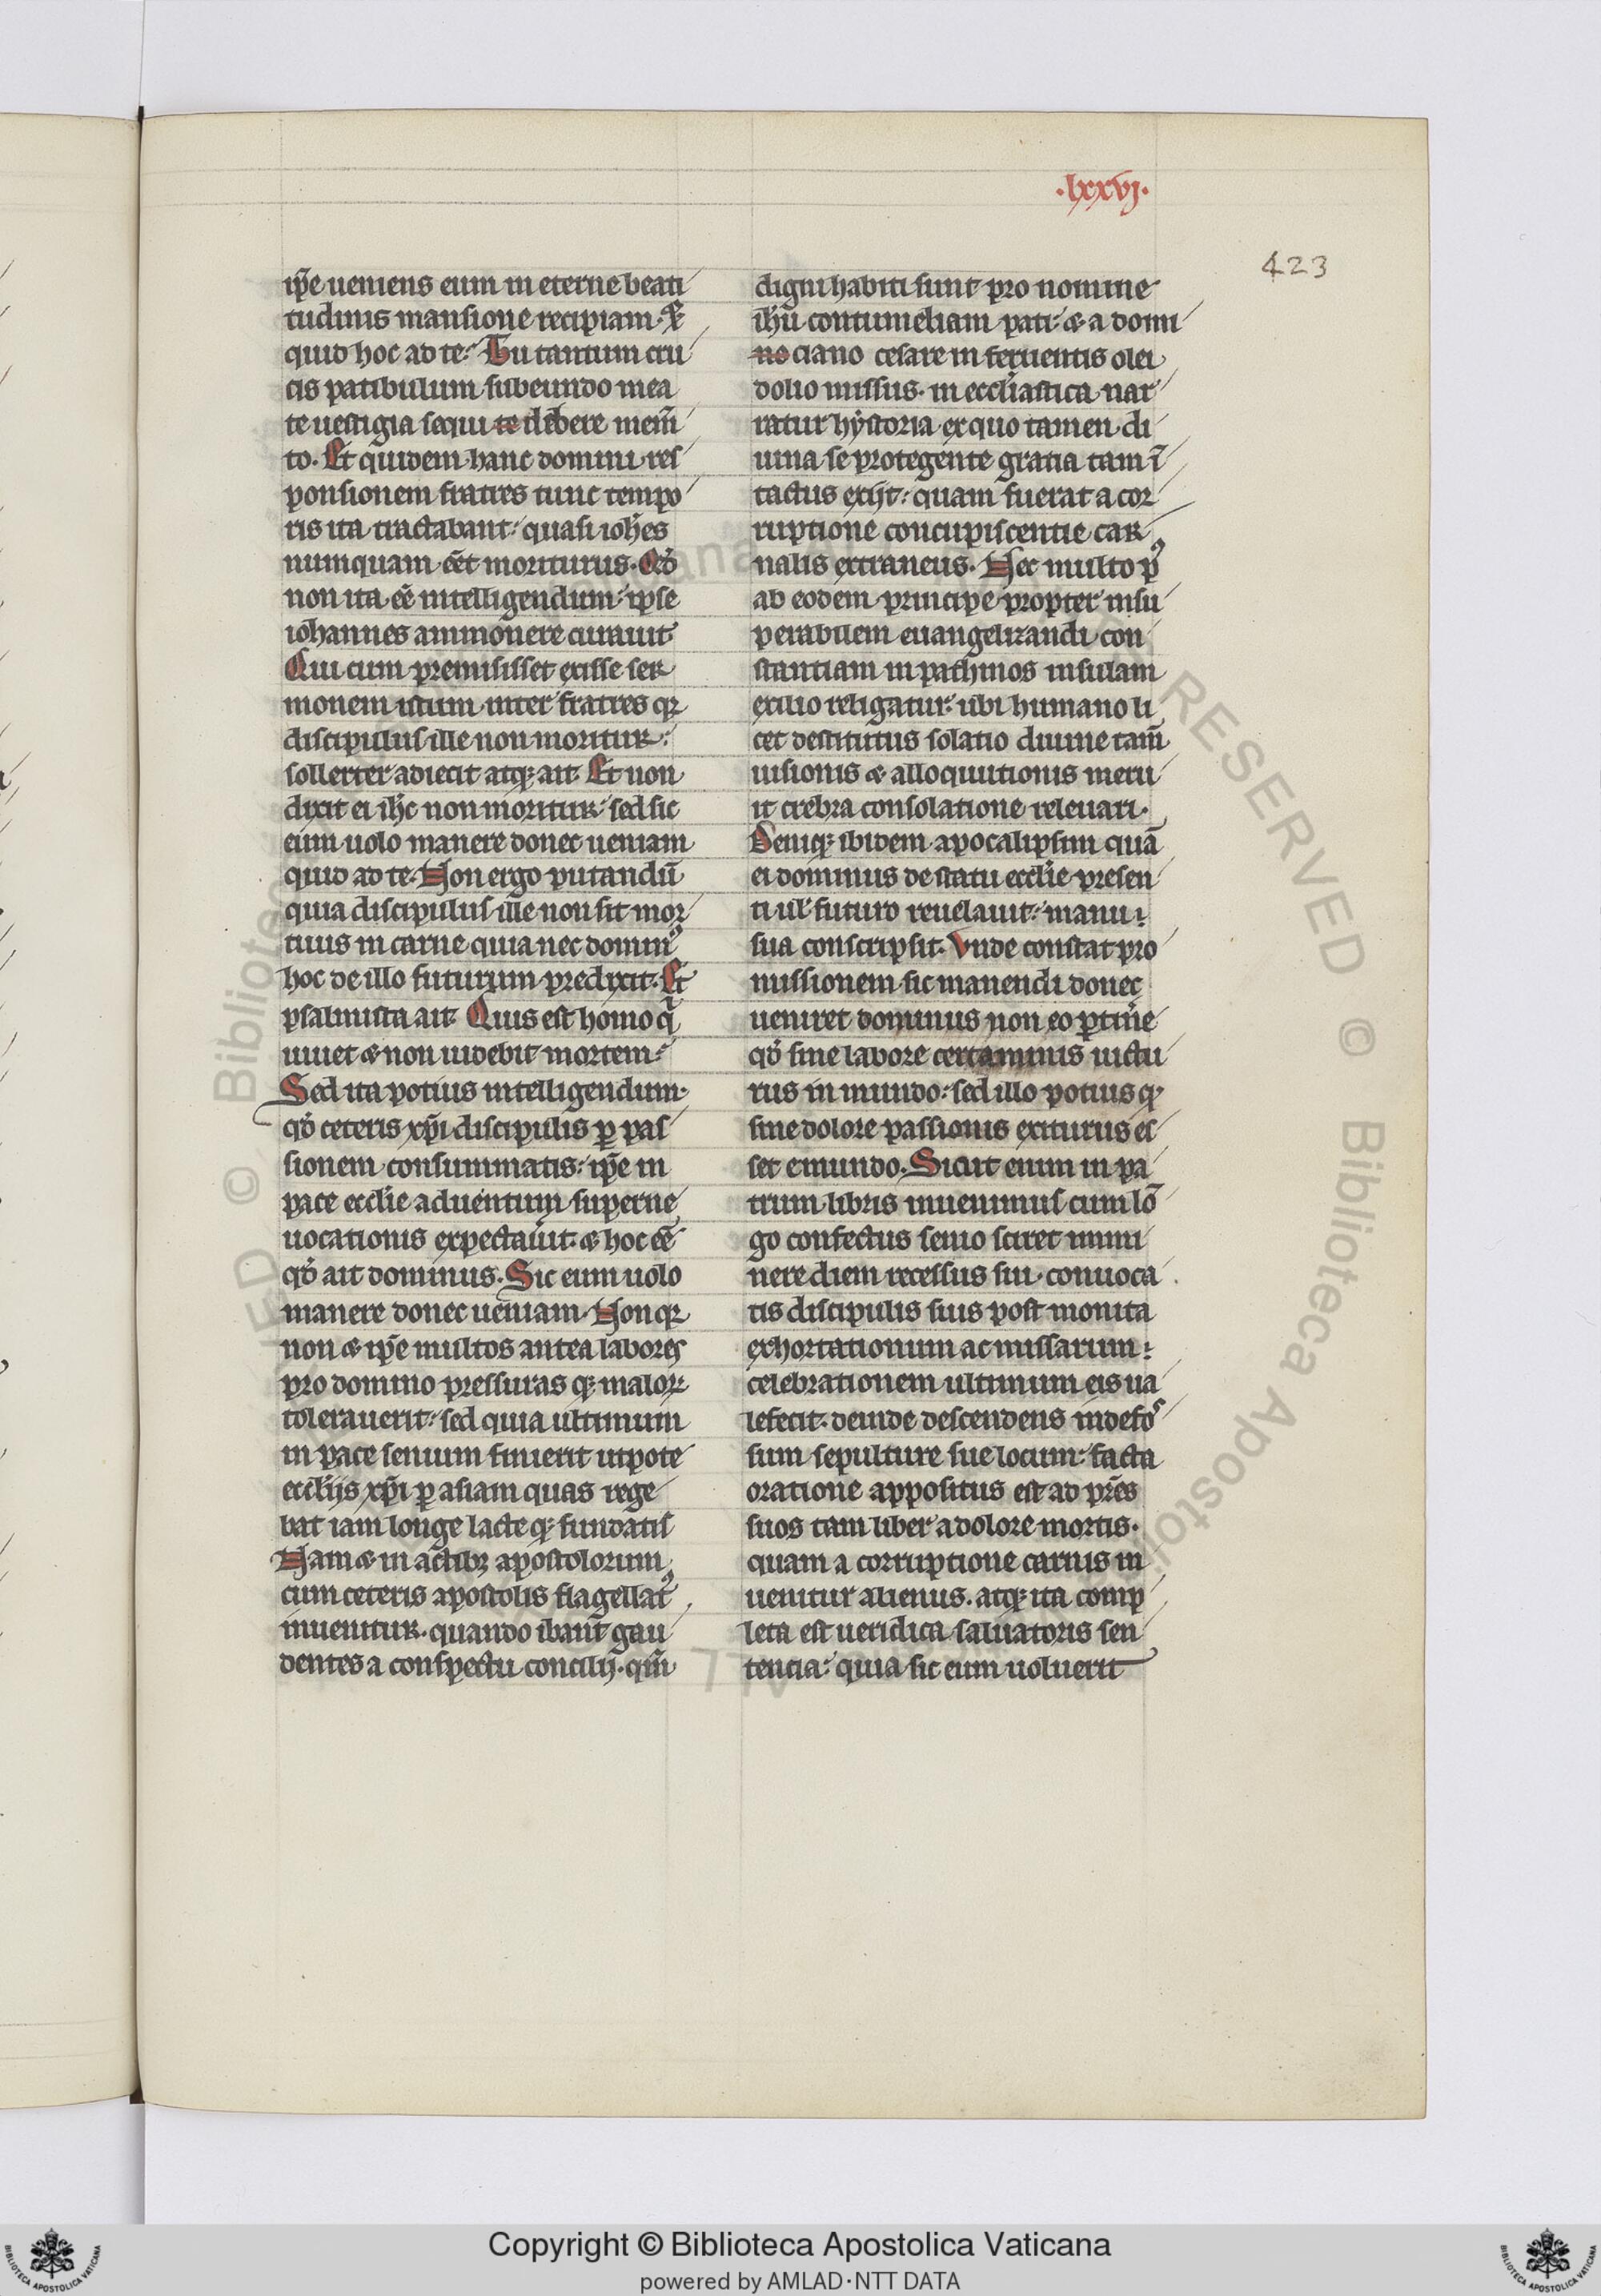 .lxxvj.
423
ip̃e ueniens eum in eterne beati
tudinis mansione recipiam.
quid hoc ad te. Tu tantum cru
cis patibulum subeundo mea
te uestigia sequi te debere mem̃
to. Et quidem hanc domini res
ponsionem fratres tunc tempo
ris ita tractabant quasi ioh̃es
numquam eēt moriturus. Qđ
non ita eē intelligendum ipse
iohannes ammonere curauit
Qui cum premisisset exisse ser
monem istum inter fratres qꝛ
discipulus ille non moritur
sollerter adiecit atqꝫ ait. Et non
dixit ei ih̃c non moritur sed sic
eum uolo manere donec ueniam
quid ad te. Non ergo putandũ
quia discipulus ille non sit mor
tuus in carne quia nec domin9
hoc de illo futurum predixit. Et
psalmista ait. Quis est homo q̃
uiuet & non uidebit mortem
Sed ita potius intelligendum.
qđ ceteris xp̃i discipulis ꝑ pas
sionem consummatis ip̃e in
pace eccl̃ie aduentum superne
uocationis expectauit. & hoc eē
qđ ait dominus. Sic eum uolo
manere donec ueniam. Non qꝛ
non & ip̃e multos antea labores
pro domino pressuras qꝫ maloꝝ
tolerauerit sed quia ultimum
in pace senium finierit utpote
eccl̃ijs xp̃i ꝑ asiam quas rege
bat iam longe lacte qꝫ fundatis
Nam & in actibꝫ apostolorum
cum ceteris apostolis flagellat9
inuenitur. quando ibant gau
dentes a conspectu concilij. qm̃
digni habiti sunt pro nomine
ih̃u contumeliam pati & a domi
no ciano cesare in feruentis olei
dolio missus. in eccl̃iastica nar
ratur hystoria ex quo tamen di
uina se protegente gratia tam ĩ
tactus exijt quam fuerat a cor
ruptione concupiscentie car
nalis extraneus. Nec multo p9
ab eodem principe propter insu
perabilem euangelizandi con
stantiam in pathmos insulam
exilio religatur ubi humano li
cet destitutus solatio diuine tam̃
uisionis & alloquutionis meru
it crebra consolatione releuari.
Deniqꝫ ibidem apocalipsim quã
ei dominus de statu eccl̃ie presen
ti ul̃ futuro reuelauit manu
sua conscripsit. Vnde constat pro
missionem sic manendi donec
ueniret dominus non eo ꝑtin̾e
qđ sine labore certaminis uictu
rus in mundo sed illo potius qꝫ
sine dolore passionis exiturus es
set e mundo. Sicut enim in pa
trum libris inuenimus cum lõ
go confectus senio sciret immi
nere diem recessus sui. conuoca
tis discipulis suis post monita
exhortationum ac missarum
celebrationem ultimum eis ua
lefecit. deinde descendens in defos
sum sepulture sue locum facta
oratione appositus est ad pr̃es
suos tam liber a dolore mortis.
quam a corruptione carnis in
uenitur alienus. atqꝫ ita comp
leta est ueridica saluatoris sen
tencia quia sic eum uoluerit
Copyright © Biblioteca Apostolica Vaticana
powered by AMLAD·NTT DATA